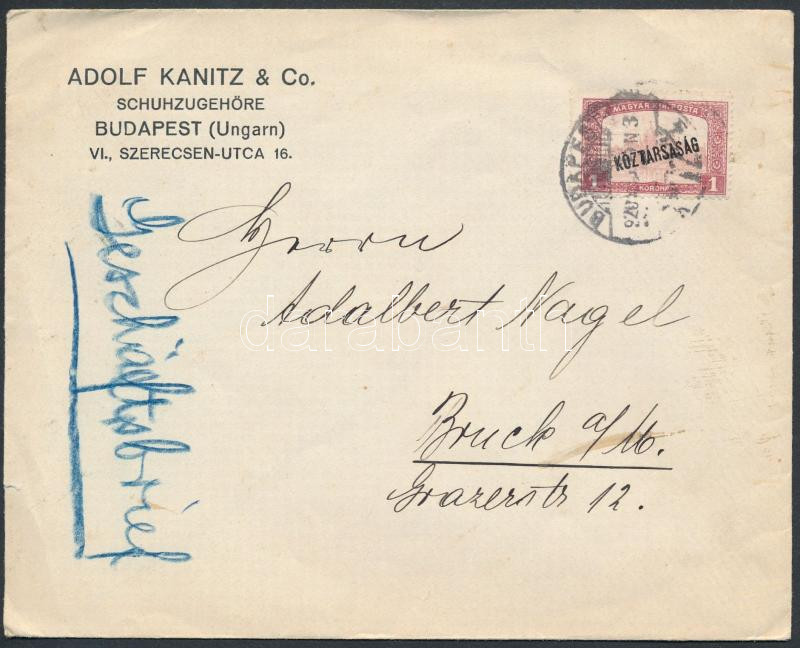 ADOLF KANITZ & Co.
SCHUHZUGEHÖRE
BUDAPEST (Ungarn)
VI., SZERECSEN-UTCA 16.
MAGYAR KIR. POSTA
KÖZTÁRSASÁG
1 KORONA 1
BUDAPEST
Geschäftsbrief
Herrn
Adalbert Nagel
darabanth
Bruck a/M.
Grazerstr 12.